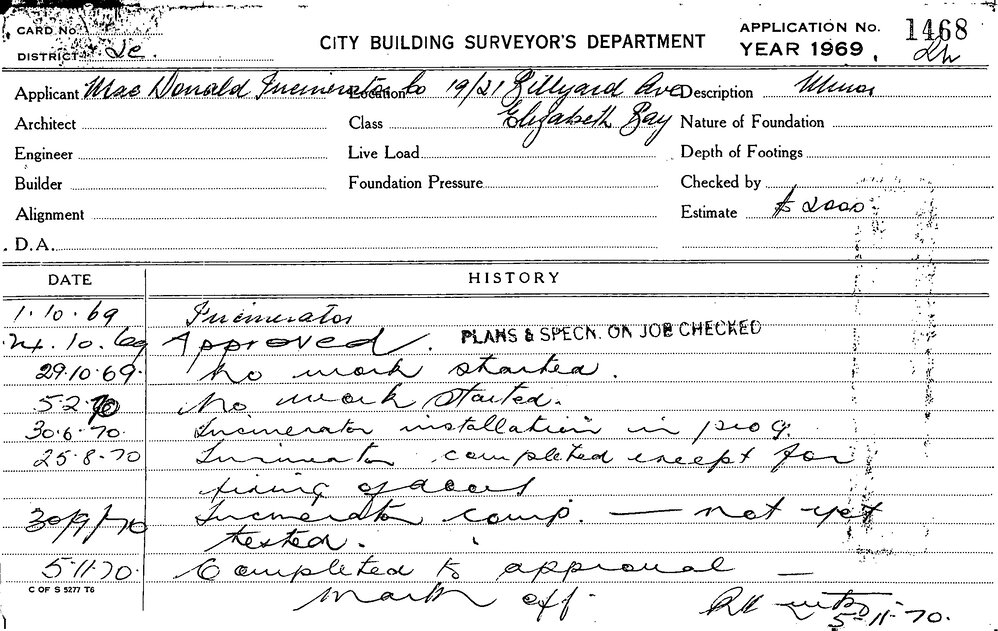 CARD No.
DISTRICT 2c.
CITY BUILDING SURVEYOR'S DEPARTMENT
APPLICATION No. 1468
YEAR 1969.
Applicant Mac Donald Incinerator Co Location 19/21 Billyard Ave Description Minor
Architect Class Elizabeth Bay Nature of Foundation
Engineer Live Load Depth of Footings
Builder Foundation Pressure Checked by
Alignment Estimate $ 2000.
D.A.
DATE HISTORY
1.10.69 Incinerator
24.10.69 Approved. PLANS & SPECN. ON JOB CHECKED
29.10.69. No work started.
5.2.70 No work started.
30.6.70. Incinerator installation in prog.
25.8.70 Incinerator completed except for
fixing of doors
30/9/70 Incinerator comp. — not yet
tested.
5.11.70. Completed to approval —
Mark off.
5-11-70.
C OF S 5277 T6